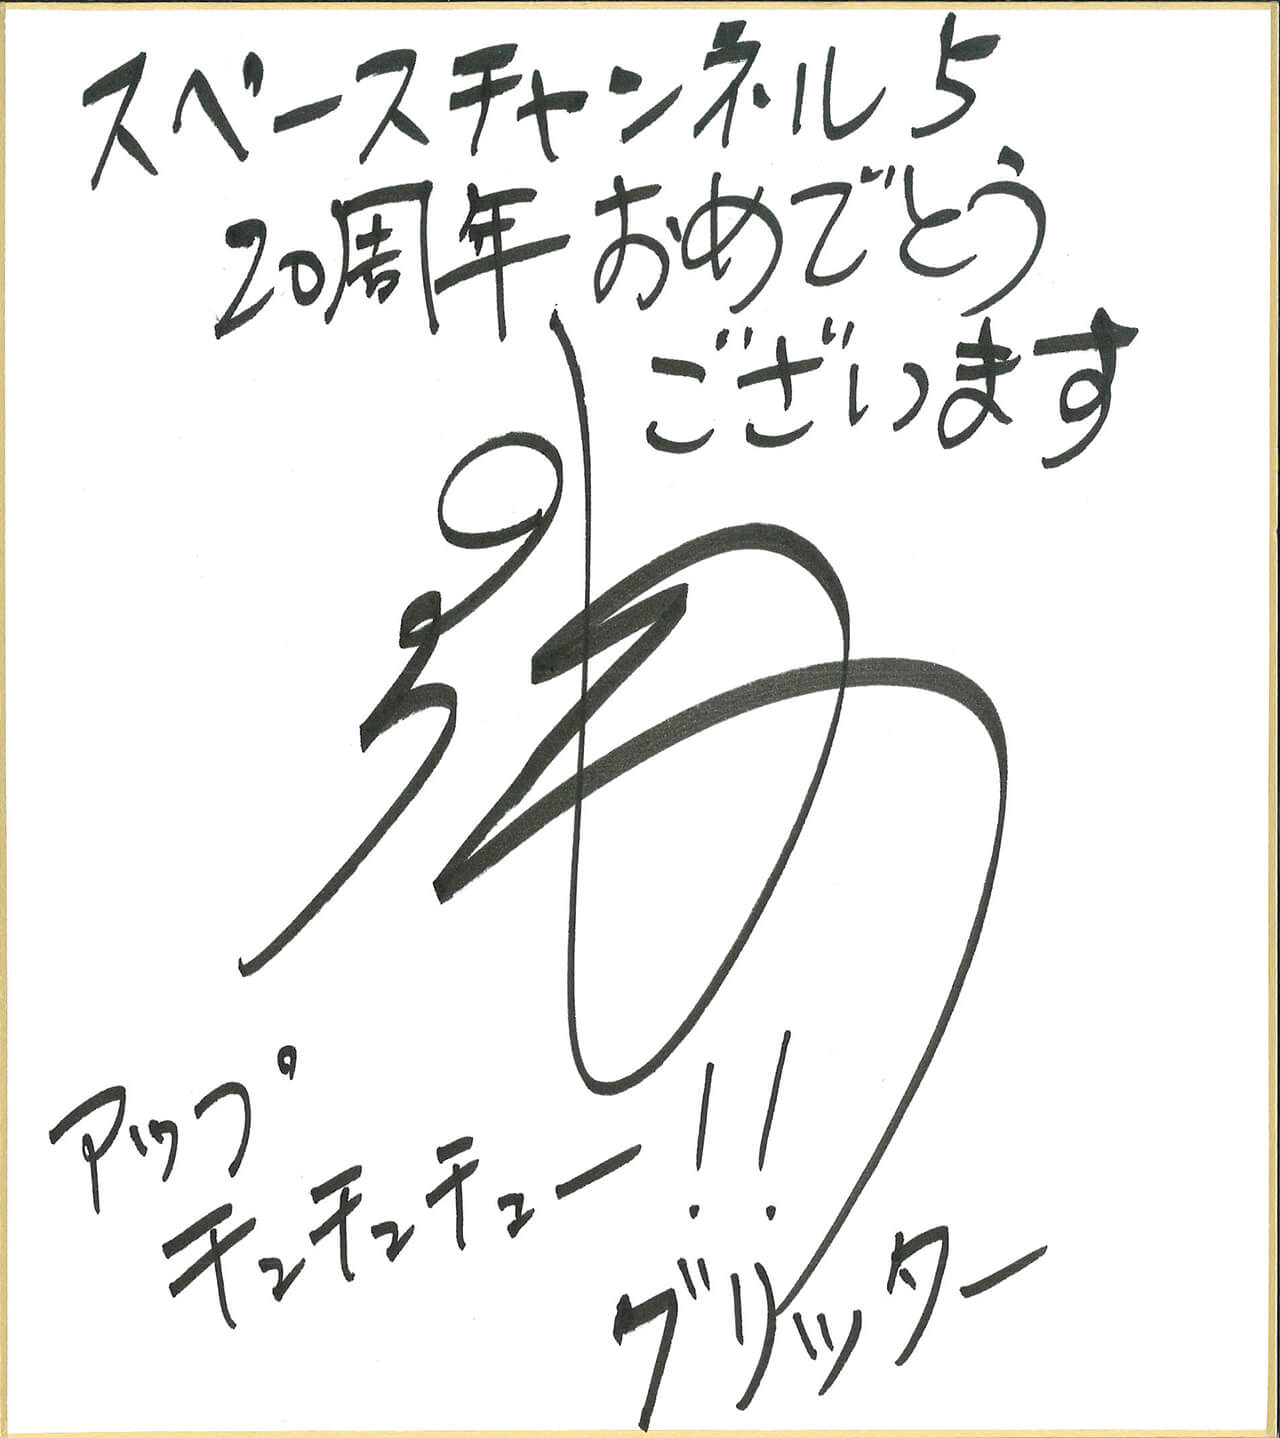 スペースチャンネル5
20周年おめでとう
ございます
アップ
チュチュチュー!!
グリッター